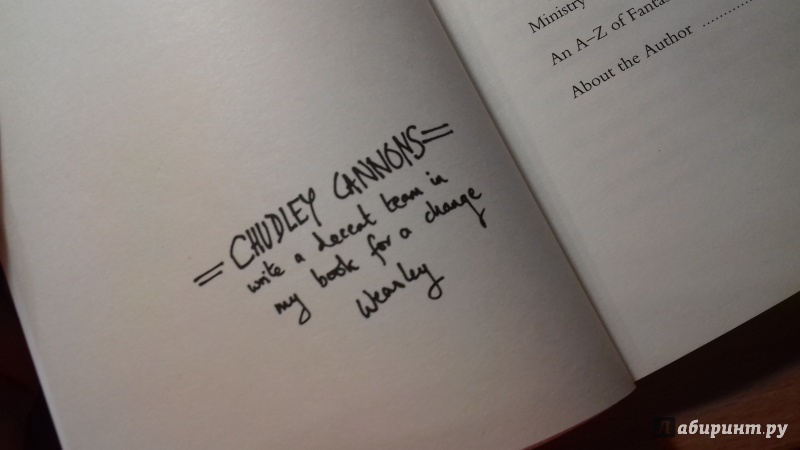 = CHUDLEY CANNONS =
write a decent team in
my book for a change
Weasley
Ministry
An A–Z of Fantas
About the Author ............
Лабиринт.ру